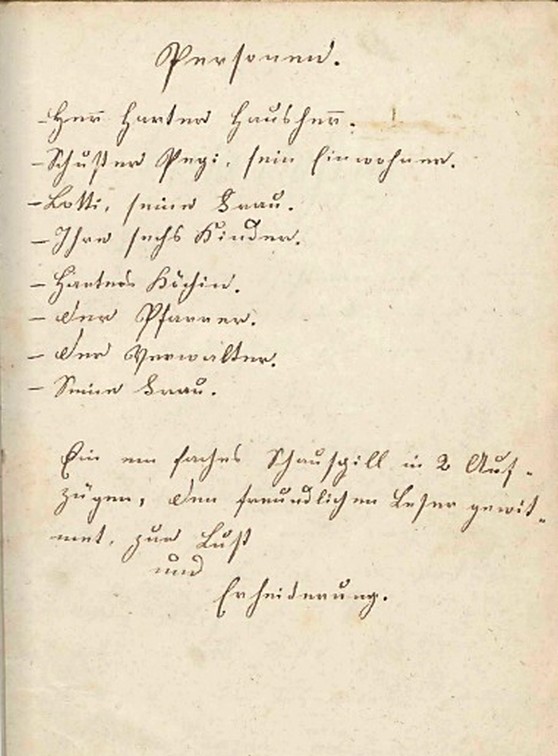 Personen.
- Herr Harter Hausherr.
- Schuster Pegi, sein Einwohner.
- Lotti, seine Frau.
- Ihre sechs Kinder.
- Harters Köchin.
- der Pfarrer.
- der Verwalter.
- Seine Frau.
Ein ein faches Schauspill in 2 Auf-
zügen, den freundlichen Leser gewit-
met, zur Lust
und
Erheiderung.